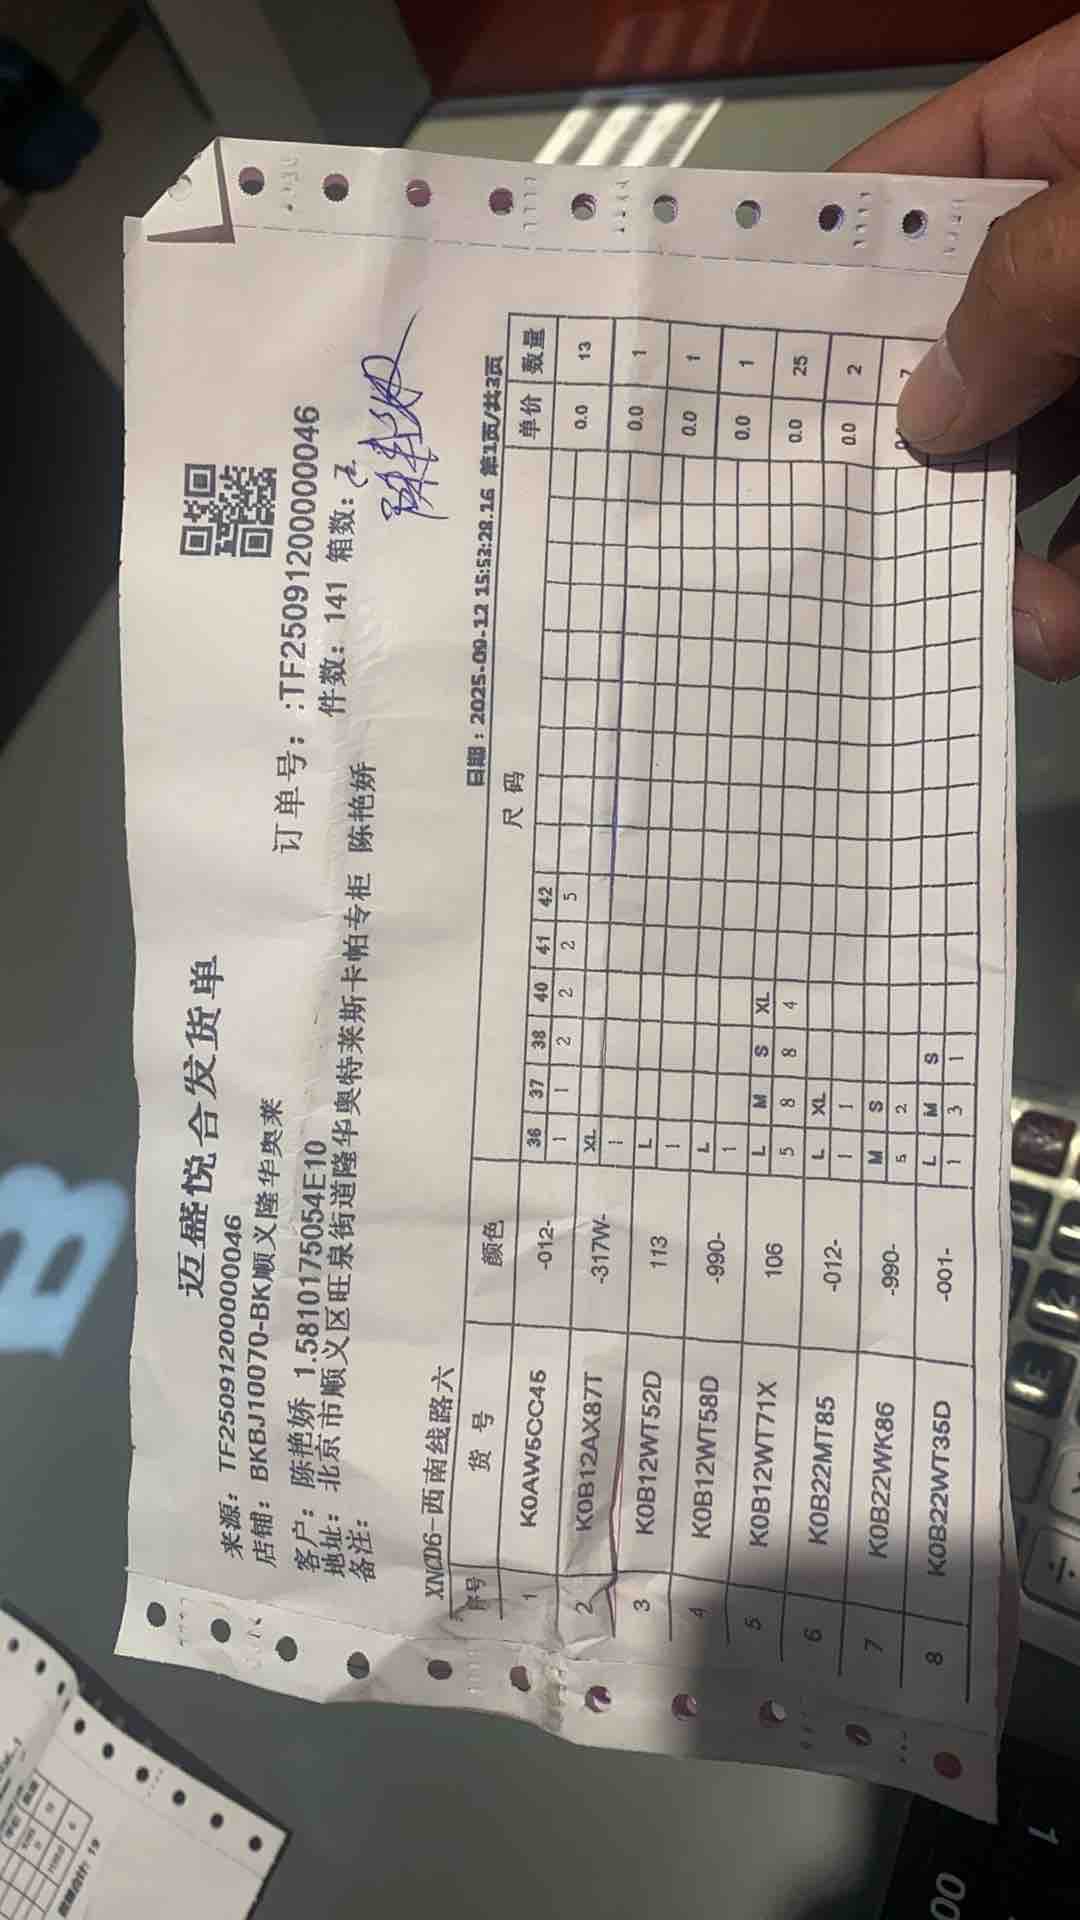 迈盛悦合发货单
来源： TF2509120000046
订单号：:TF2509120000046
店铺： BKBJ10070-BK顺义隆华奥莱
件数：141 箱数：
客户： 陈艳娇 1.5810175054E10
地址： 北京市顺义区旺泉街道隆华奥特莱斯卡帕专柜 陈艳娇
备注：
XNCD6-西南线路六
日期：2025-09-12 15:53:28.16 第1页/共3页
序号 货号 颜色 尺码 单价 数量
36 37 38 40 41 42
1 K0AW5CC45 -012- 1 1 2 2 2 5 0.0 13
XL
2 K0B12AX87T -317W- 1 0.0 1
L
3 K0B12WT52D 113 1 0.0 1
L
4 K0B12WT58D -990- 1 0.0 1
L M S XL
5 K0B12WT71X 106 5 8 8 4 0.0 25
L XL
6 K0B22MT85 -012- 1 1 0.0 2
M S
7 K0B22WK86 -990- 5 2 7
L M S
8 K0B22WT35D -001- 1 3 1